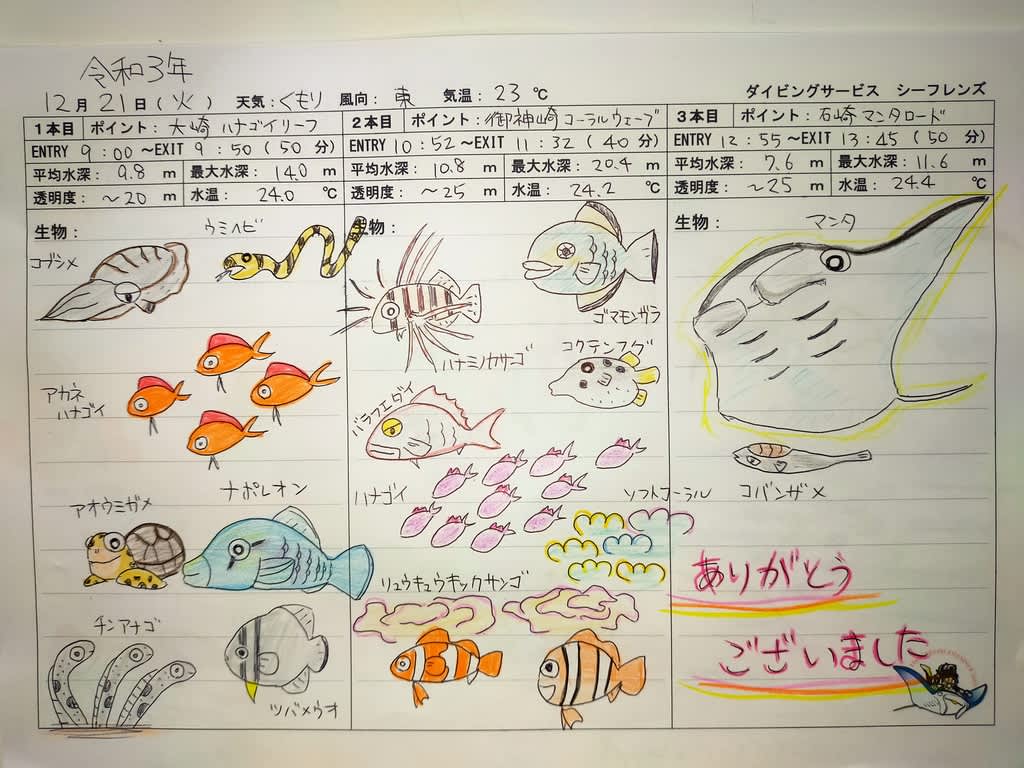 令和3年
12月21日(火) 天気:くもり 風向:東 気温:23℃ ダイビングサービス シーフレンズ
1本目 ポイント:大崎 ハナゴイリーフ
ENTRY 9:00~EXIT 9:50(50分)
平均水深:9.8m 最大水深:14.0m
透明度:~20m 水温:24.0℃
生物:
ウミヘビ
コブシメ
アカネ
ハナゴイ
ナポレオン
アオウミガメ
チンアナゴ
ツバメウオ
2本目 ポイント:御神崎 コーラルウェーブ
ENTRY 10:52~EXIT 11:32(40分)
平均水深:10.8m 最大水深:20.4m
透明度:~25m 水温:24.2℃
生物:
ゴマモンガラ
ハナミノカサゴ
コクテンフグ
バラフエダイ
ハナゴイ
ソフトコーラル
リュウキュウキッカサンゴ
3本目 ポイント:石崎 マンタロード
ENTRY 12:55~EXIT 13:45(50分)
平均水深:7.6m 最大水深:11.6m
透明度:~25m 水温:24.4℃
生物:
マンタ
コバンザメ
ありがとう
ございました